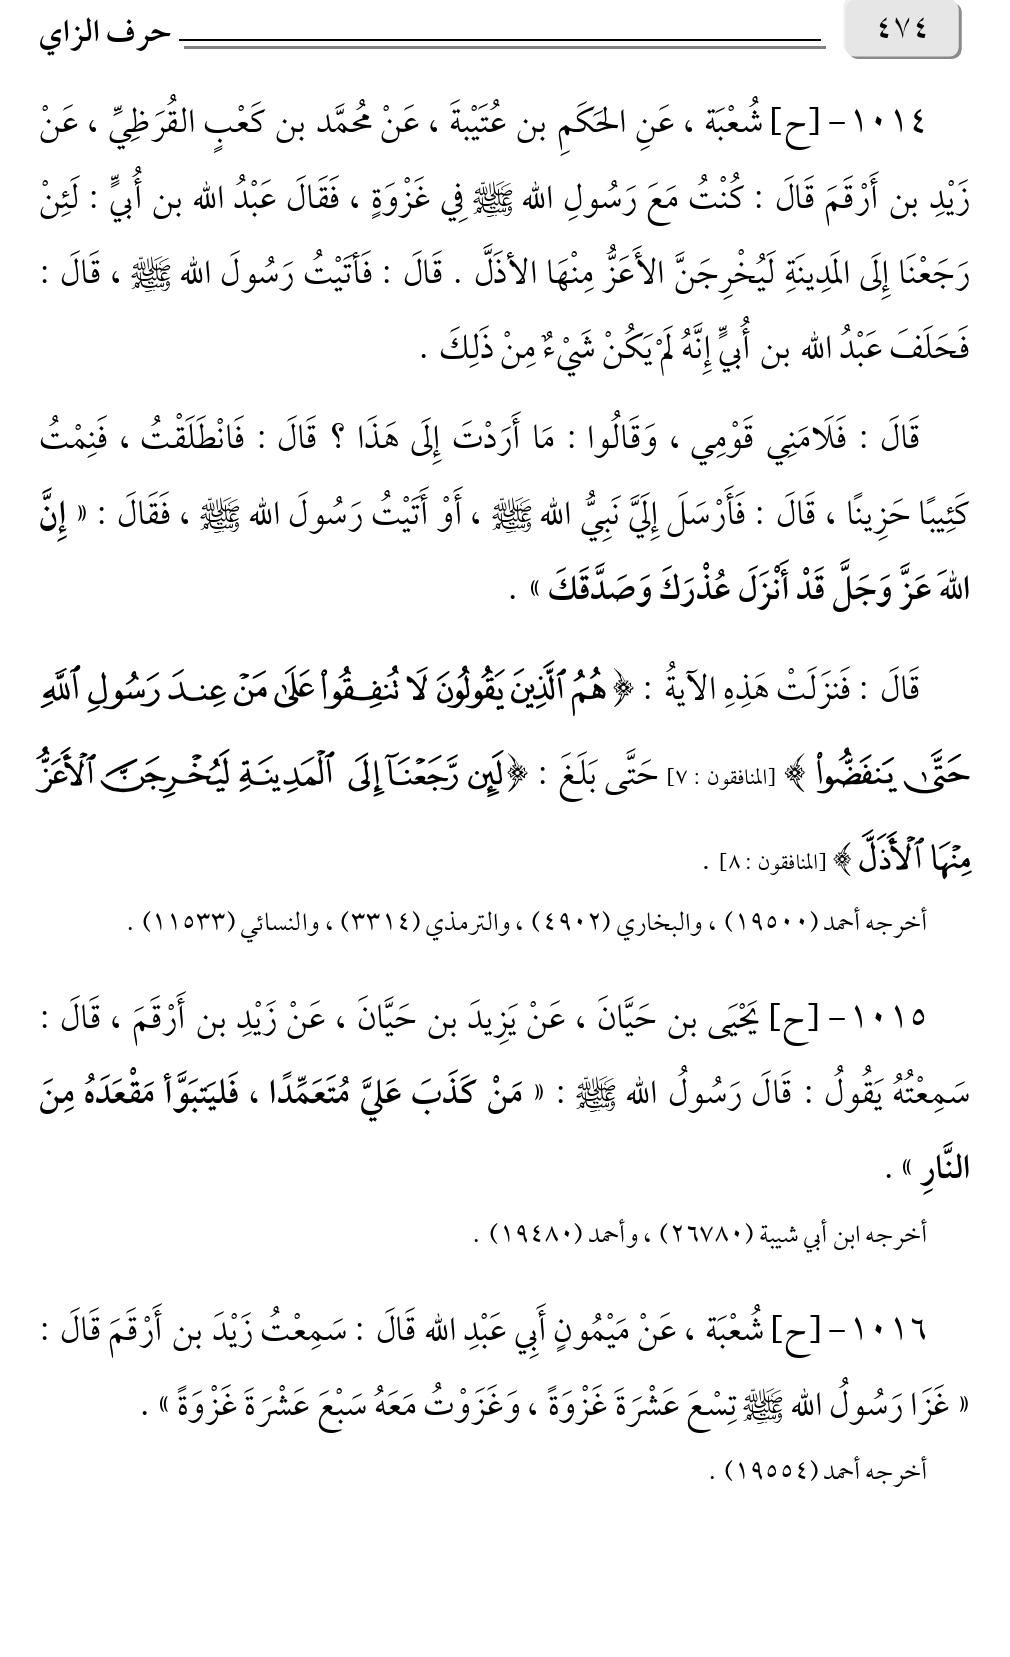 ٤٧٤ حرف الزاي
١٠١٤- [ح] شُعْبَة ، عَنِ الحَكَمِ بن عُتَيْبةَ ، عَنْ مُحمَّد بن كَعْبٍ القُرَظِيِّ ، عَنْ
زَيْدِ بن أَرْقَمَ قَالَ : كُنْتُ مَعَ رَسُولِ الله ﷺ فِي غَزْوَةٍ ، فَقَالَ عَبْدُ الله بن أُبيٍّ : لَئِنْ
رَجَعْنَا إِلَى المَدِينَةِ لَيُخْرِجَنَّ الأَعَزُّ مِنْهَا الأذَلَّ . قَالَ : فَأتَيْتُ رَسُولَ الله ﷺ ، قَالَ :
فَحَلَفَ عَبْدُ الله بن أُبيٍّ إِنَّهُ لَمْ يَكُنْ شَيْءٌ مِنْ ذَلِكَ .
قَالَ : فَلَامَنِي قَوْمِي ، وَقَالُوا : مَا أَرَدْتَ إِلَى هَذَا ؟ قَالَ : فَانْطَلَقْتُ ، فَنِمْتُ
كَئِيبًا حَزِينًا ، قَالَ : فَأَرْسَلَ إِلَيَّ نَبِيُّ الله ﷺ ، أَوْ أَتَيْتُ رَسُولَ الله ﷺ ، فَقَالَ : « إِنَّ
اللهَ عَزَّ وَجَلَّ قَدْ أَنْزَلَ عُذْرَكَ وَصَدَّقَكَ » .
قَالَ : فَنزَلَتْ هَذِهِ الآيةُ : ﴿ هُمُ ٱلَّذِينَ يَقُولُونَ لَا تُنفِقُوا۟ عَلَىٰ مَنْ عِندَ رَسُولِ ٱللَّهِ
حَتَّىٰ يَنفَضُّوا۟ ﴾ [المنافقون : ٧] حَتَّى بَلَغَ : ﴿لَئِن رَّجَعْنَآ إِلَى ٱلْمَدِينَةِ لَيُخْرِجَنَّ ٱلْأَعَزُّ
مِنْهَا ٱلْأَذَلَّ ﴾ [المنافقون : ٨] .
أخرجه أحمد (١٩٥٠٠) ، والبخاري (٤٩٠٢) ، والترمذي (٣٣١٤) ، والنسائي (١١٥٣٣) .
١٠١٥- [ح] يَحْيَى بن حَيَّانَ ، عَنْ يَزِيدَ بن حَيَّانَ ، عَنْ زَيْدِ بن أَرْقَمَ ، قَالَ :
سَمِعْتُهُ يَقُولُ : قَالَ رَسُولُ الله ﷺ : « مَنْ كَذَبَ عَليَّ مُتَعَمِّدًا ، فَليَتبَوَّأ مَقْعَدَهُ مِنَ
النَّارِ » .
أخرجه ابن أبي شيبة (٢٦٧٨٠) ، وأحمد (١٩٤٨٠) .
١٠١٦- [ح] شُعْبَة ، عَنْ مَيْمُونٍ أَبِي عَبْدِ الله قَالَ : سَمِعْتُ زَيْدَ بن أَرْقَمَ قَالَ :
« غَزَا رَسُولُ الله ﷺ تِسْعَ عَشْرَةَ غَزْوَةً ، وَغَزَوْتُ مَعَهُ سَبْعَ عَشْرَةَ غَزْوَةً » .
أخرجه أحمد (١٩٥٥٤) .